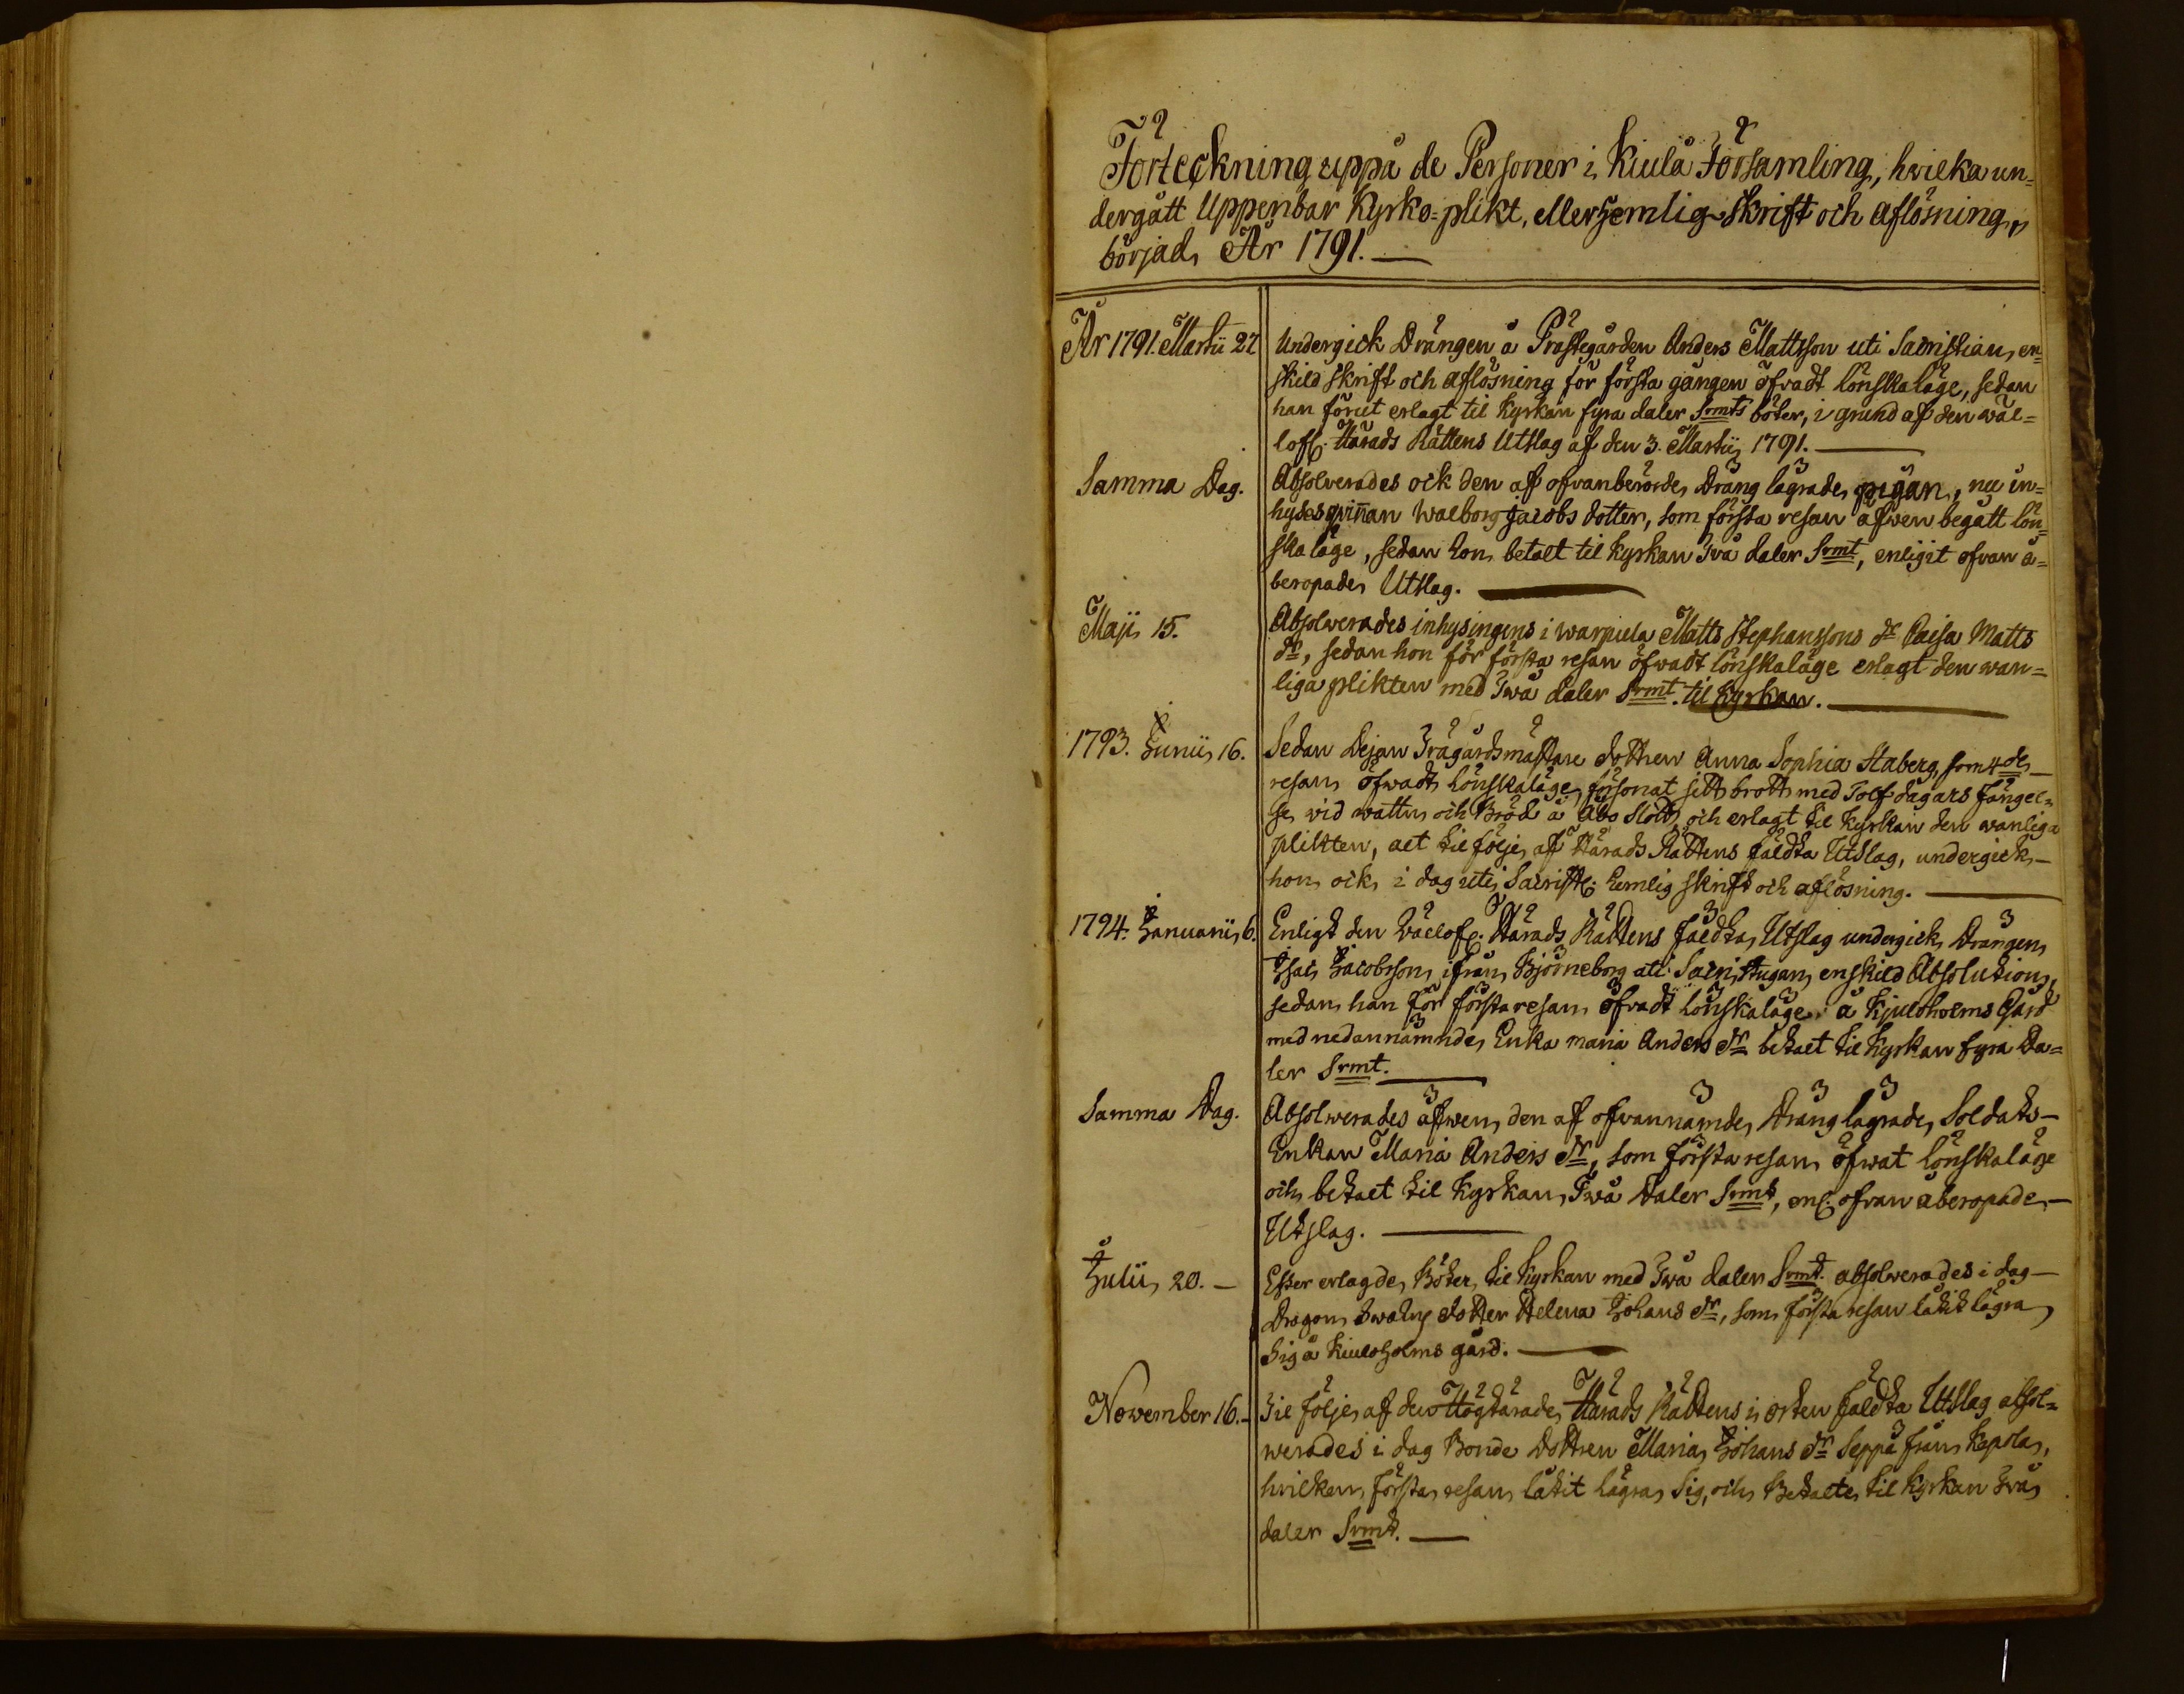 Förteckning uppå de Personer i Kiulå Församling, hvilka un=
dergått Uppenbar Kyrko=plikt, eller hemlig skrift och aflösning,
börjad År 1791.
År 1791. Martii 27 Undergick Drängen å Prästegården Anders Mattsson uti Sacristian, en=
skild skrift och aflösning för första gången öfvadt lönskaläge, sedan
han förut erlagt til Kyrkan fyra daler Srmts böter, i grund af den wäl=
lofl. Härads Rättens Utslag af den 3. Martii 1791.
Samma Dag. Absolverades ock den af ofvanberörde Dräng lägrade pigan, nu in=
hyses qwinnan Walborg Jacobs dotter, som första resan äfwen begått lön=
skaläge, sedan hon betalt til kyrkan Två daler Srmt, enligit ofvan å=
beropade Utslag.
Maji 15. Absolverades inhysingens i Warpula Matts Stephanssons dr Caisa Matts
dr, sedan hon för första resan öfwadt lönskaläge erlagt den wan=
liga plikten med Twå daler Srmt. til Kyrkan.
1793. Junii 16. Sedan Dejan Trägårdsmästare dottren Anna Sophia Staberg, som 4de
resan öfwadt lönskaläge, försonat sitt brott med Tolf dagars fängel=
se wid watten och Bröd å Åbo Slott, och erlagt til Kyrkan den wanliga
plikten, alt til följe af Härads Rättens fäldta Utslag, undergick
hon ock i dag uti Sacristi: hemlig skrift och aflösning.
1794. Januarii 6. Enligt den Wällofl. Härads Rättens fäldta Utslag undergick Drängen
Isac Jacobsson ifrån Björneborg uti Sacristugan enskild Absolution,
sedan han för första resan öfvadt lönskaläge å Kjuloholms Gård
med nedannämnde Enka Maria Anders dr betalt til Kyrkan fyra Da=
ler Srmt.
Samma Dag. Absolwerades äfwen den af ofvannämde Dräng lägrade Soldats
Enkan Maria Anders dr, som första resan öfwat lönskaläge
och betalt til Kyrkan Twå Daler Srmt, enl. ofvan åberopade
Utslag.
Julii 20. Efter erlagde Böter til Kyrkan med Twå daler Srmt. absolverades i dag
Dragon dotter Helena Johans dr, som första resan låtit lägra
Sig å Kiuloholms gård.
November 16. Til följe af den Högtärade Härads Rättens i orten fäldta Utslag absol=
werades i dag Bonde Dottren Maria Johans dr Seppä från Kepola,
hvilken första resan låtit lägra Sig, och Betalte til Kyrkan Två
daler Srmt.